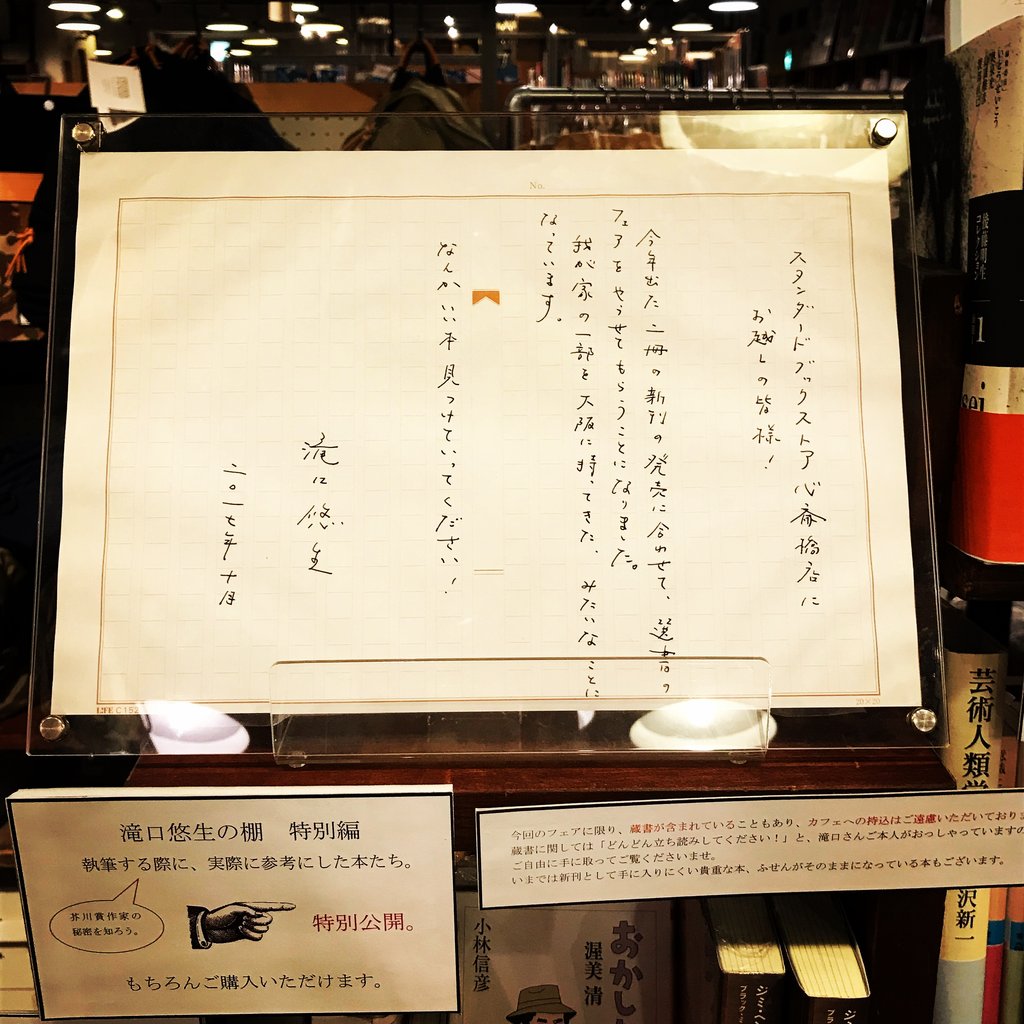 No.
スタンダードブックストア心斎橋店に
お越しの皆様！
今年出た二冊の新刊の発売に合わせて、選書の
フェアをやらせてもらうことになりました。
我が家の一部を大阪に持ってきた、みたいなことに
なっています。
なんかいい本見つけていってください！
滝口悠生
二〇一七年十月
LIFE C152
20×20
滝口悠生の棚　特別編
執筆する際に、実際に参考にした本たち。
芥川賞作家の
秘密を知ろう。
特別公開。
もちろんご購入いただけます。
今回のフェアに限り、蔵書が含まれていることもあり、カフェへの持込はご遠慮いただいており
蔵書に関しては「どんどん立ち読みしてください！」と、滝口さんご本人がおっしゃっていますの
ご自由に手に取ってご覧くださいませ。
いまでは新刊として手に入りにくい貴重な本、ふせんがそのままになっている本もございます。
後藤明生
コレクション
1
芸術人類学
沢新一
小林信彦
おかし
渥美清
ジミ・ヘン
ブラック・
ジ
ブラ